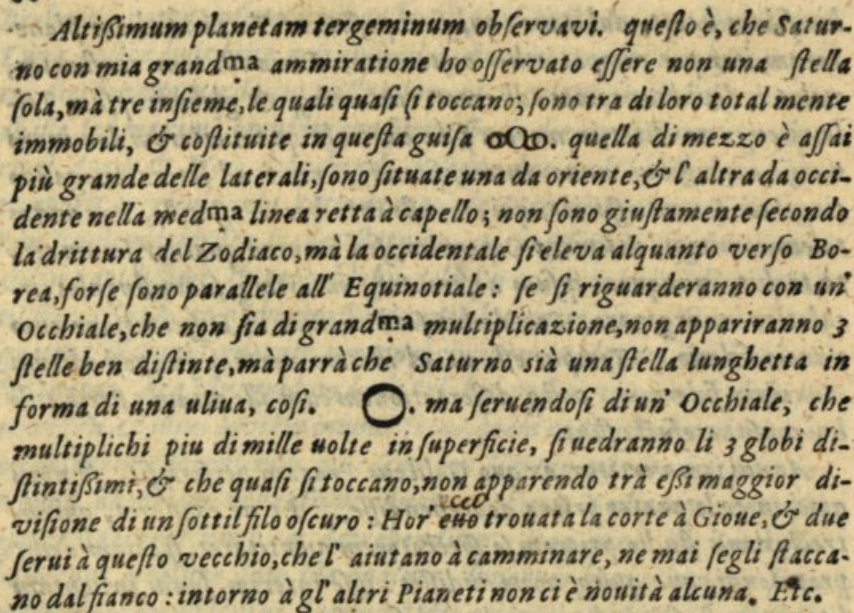 Altißimum planetam tergeminum obſervavi. queſto è, che Satur-
no con mia grandᵐᵃ ammiratione ho oſſervato eſſere non una ſtella
ſola,mà tre inſieme,le quali quaſi ſi toccano; ſono tra di loro total mente
immobili, & coſtituite in queſta guiſa oOo. quella di mezzo è aſſai
più grande delle laterali,ſono ſituate una da oriente,& l' altra da occi-
dente nella medᵐᵃ linea retta à capello; non ſono giuſtamente ſecondo
la drittura del Zodiaco,mà la occidentale ſi eleva alquanto verſo Bo-
rea,forſe ſono parallele all' Equinotiale: ſe ſi riguarderanno con un'
Occhiale,che non ſia di grandᵐᵃ multiplicazione,non appariranno 3
ſtelle ben diſtinte,mà parrà che Saturno sià una ſtella lunghetta in
forma di una uliua, coſi. O. ma ſeruendoſi di un' Occhiale, che
multiplichi piu di mille uolte in ſuperficie, ſi uedranno li 3 globi di-
ſtintißimi,& che quaſi ſi toccano,non apparendo trà eßi maggior di-
viſione di un ſottil filo oſcuro : Hor' ecco trouata la corte à Gioue,& due
ſerui à queſto vecchio,che l' aiutano à camminare, ne mai ſegli ſtacca-
no dal fianco : intorno à gl' altri Pianeti non ci è nouità alcuna. Etc.